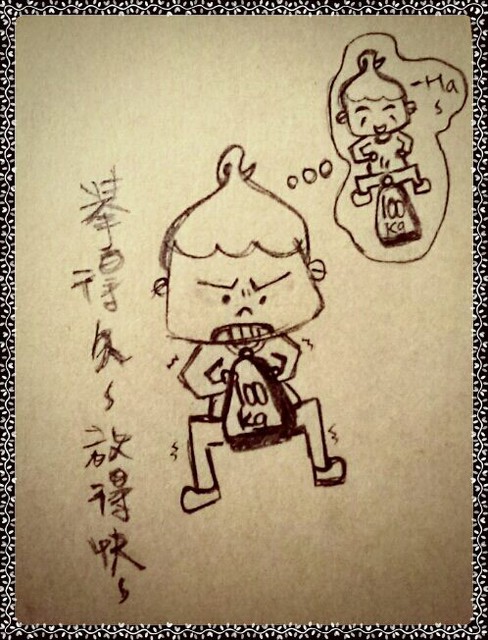 舉得久~放得快~
100
kg
~Ha~
100
Kg